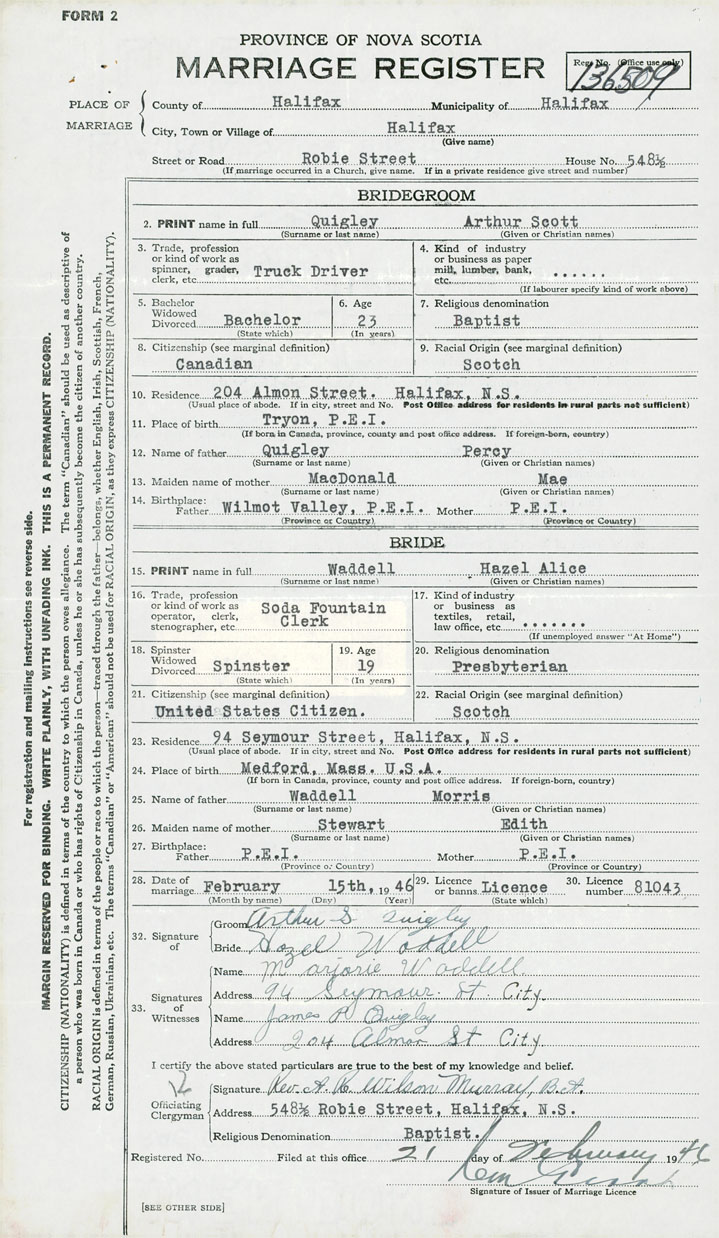 FORM 2
PROVINCE OF NOVA SCOTIA
MARRIAGE REGISTER
Reg. No. (Office use only)
136509
PLACE OF MARRIAGE
County of Halifax Municipality of Halifax
City, Town or Village of Halifax
(Give name)
Street or Road Robie Street House No. 548½
(If marriage occurred in a Church, give name. If in a private residence give street and number)
BRIDEGROOM
2. PRINT name in full Quigley Arthur Scott
(Surname or last name) (Given or Christian names)
3. Trade, profession or kind of work as spinner, grader, clerk, etc. Truck Driver
4. Kind of industry or business as paper mill, lumber, bank, etc. ......
(If labourer specify kind of work above)
5. Bachelor Widowed Divorced Bachelor
(State which)
6. Age 23
(In years)
7. Religious denomination
Baptist
8. Citizenship (see marginal definition)
Canadian
9. Racial Origin (see marginal definition)
Scotch
10. Residence 204 Almon Street. Halifax, N.S.
(Usual place of abode. If in city, street and No. Post Office address for residents in rural parts not sufficient)
11. Place of birth Tryon, P.E.I.
(If born in Canada, province, county and post office address. If foreign-born, country)
12. Name of father Quigley Percy
(Surname or last name) (Given or Christian names)
13. Maiden name of mother MacDonald Mae
(Surname or last name) (Given or Christian names)
14. Birthplace: Father Wilmot Valley, P.E.I. Mother P.E.I.
(Province or Country) (Province or Country)
BRIDE
15. PRINT name in full Waddell Hazel Alice
(Surname or last name) (Given or Christian names)
16. Trade, profession or kind of work as operator, clerk, stenographer, etc Soda Fountain Clerk
17. Kind of industry or business as textiles, retail, law office, etc. .......
(If unemployed answer "At Home")
18. Spinster Widowed Divorced Spinster
(State which)
19. Age 19
(In years)
20. Religious denomination
Presbyterian
21. Citizenship (see marginal definition)
United States Citizen.
22. Racial Origin (see marginal definition)
Scotch
23. Residence 94 Seymour Street, Halifax, N.S.
(Usual place of abode. If in city, street and No. Post Office address for residents in rural parts not sufficient)
24. Place of birth Medford, Mass. U.S.A.
(If born in Canada, province, county and post office address. If foreign-born, country)
25. Name of father Waddell Morris
(Surname or last name) (Given or Christian names)
26. Maiden name of mother Stewart Edith
(Surname or last name) (Given or Christian names)
27. Birthplace: Father P.E.I. Mother P.E.I.
(Province or Country) (Province or Country)
28. Date of marriage February 15th, 1946
(Month by name) (Day) (Year)
29. Licence or banns Licence
(State which)
30. Licence number 81043
32. Signature of
Groom Arthur S Quigley
Bride Hazel Waddell
33. Signatures of Witnesses
Name Marjorie Waddell
Address 94 Seymour St. City
Name James P Quigley
Address 204 Almon St City
I certify the above stated particulars are true to the best of my knowledge and belief.
Officiating Clergyman
Signature Rev. A. K. Wilson Murray, B.A.
Address 548½ Robie Street, Halifax, N.S.
Religious Denomination Baptist.
Registered No. Filed at this office 21 day of February 1946
Signature of Issuer of Marriage Licence
[SEE OTHER SIDE]
For registration and mailing instructions see reverse side.
MARGIN RESERVED FOR BINDING. WRITE PLAINLY, WITH UNFADING INK. THIS IS A PERMANENT RECORD.
CITIZENSHIP (NATIONALITY) is defined in terms of the country to which the person owes allegiance. The term "Canadian" should be used as descriptive of
a person who was born in Canada or who has rights of Citizenship in Canada, unless he or she has subsequently become the citizen of another country.
RACIAL ORIGIN is defined in terms of the people or race to which the person—traced through the father—belongs, whether English, Irish, Scottish, French,
German, Russian, Ukrainian, etc. The terms "Canadian" or "American" should not be used for RACIAL ORIGIN, as they express CITIZENSHIP (NATIONALITY).